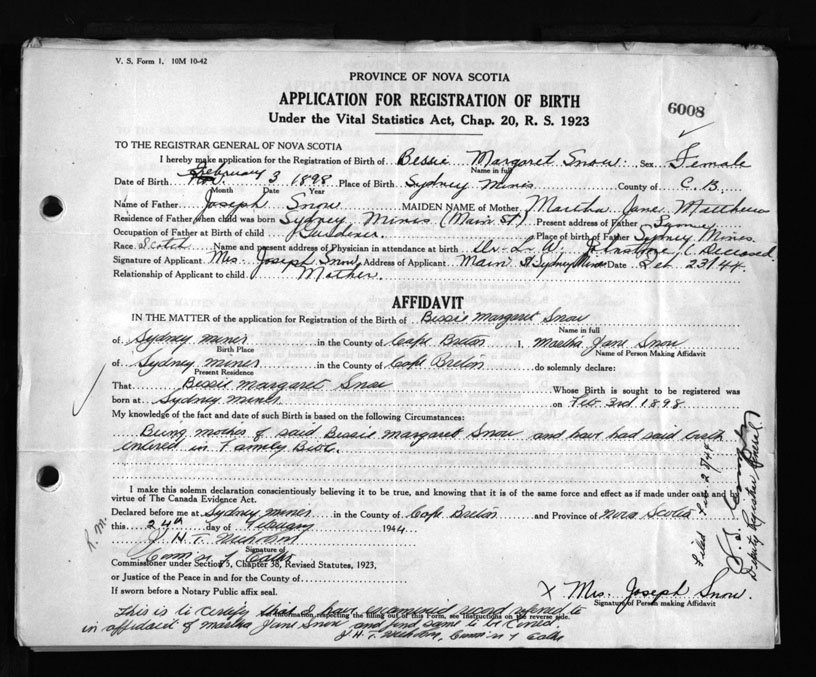 V. S. Form 1. 10M 10-42
PROVINCE OF NOVA SCOTIA
APPLICATION FOR REGISTRATION OF BIRTH
6008
Under the Vital Statistics Act, Chap. 20, R. S. 1923
TO THE REGISTRAR GENERAL OF NOVA SCOTIA
I hereby make application for the Registration of Birth of Bessie Margaret Snow. Sex Female
Name in full
Date of Birth February 3 1898 Place of Birth Sydney Mines County of C. B.
Month Date Year
Name of Father Joseph Snow MAIDEN NAME of Mother Martha Jane Matthews
Residence of Father when child was born Sydney Mines (Main St.) Present address of Father Same
Occupation of Father at Birth of child Place of birth of Father Sydney Mines
Race Scotch Name and present address of Physician in attendance at birth Dr. L. W. Johnstone (Deceased
Signature of Applicant Mrs Joseph Snow Address of Applicant Main St Sydney Mines Date Feb 23/44.
Relationship of Applicant to child Mother.
AFFIDAVIT
IN THE MATTER of the application for Registration of the Birth of Bessie Margaret Snow
Name in full
of Sydney mines in the County of Cape Breton I, Martha Jane Snow
Birth Place Name of Person Making Affidavit
of Sydney mines in the County of Cape Breton do solemnly declare:
Present Residence
That Bessie Margaret Snow Whose Birth is sought to be registered was
born at Sydney mines on Feb. 3rd. 1898.
My knowledge of the fact and date of such Birth is based on the following Circumstances:
Being mother of said Bessie Margaret Snow and have had said birth
entered in Family Bible.
I make this solemn declaration conscientiously believing it to be true, and knowing that it is of the same force and effect as if made under oath and by
virtue of The Canada Evidence Act.
Declared before me at Sydney mines in the County of Cape Breton and Province of Nova Scotia
this 24th day of February 1944
J H T.
Signature of
Commissioner under Section 5, Chapter 38, Revised Statutes, 1923,
or Justice of the Peace in and for the County of
If sworn before a Notary Public affix seal.
X Mrs. Joseph Snow.
Signature of Person making Affidavit
For information respecting the filling out of this Form, see Instructions on the reverse side.
This is to certify that I have examined record referred to
in affidavit of Martha Jane Snow and find same to be correct.
J H T.
R.M.
Filed Feb 29/44
Deputy Registrar General